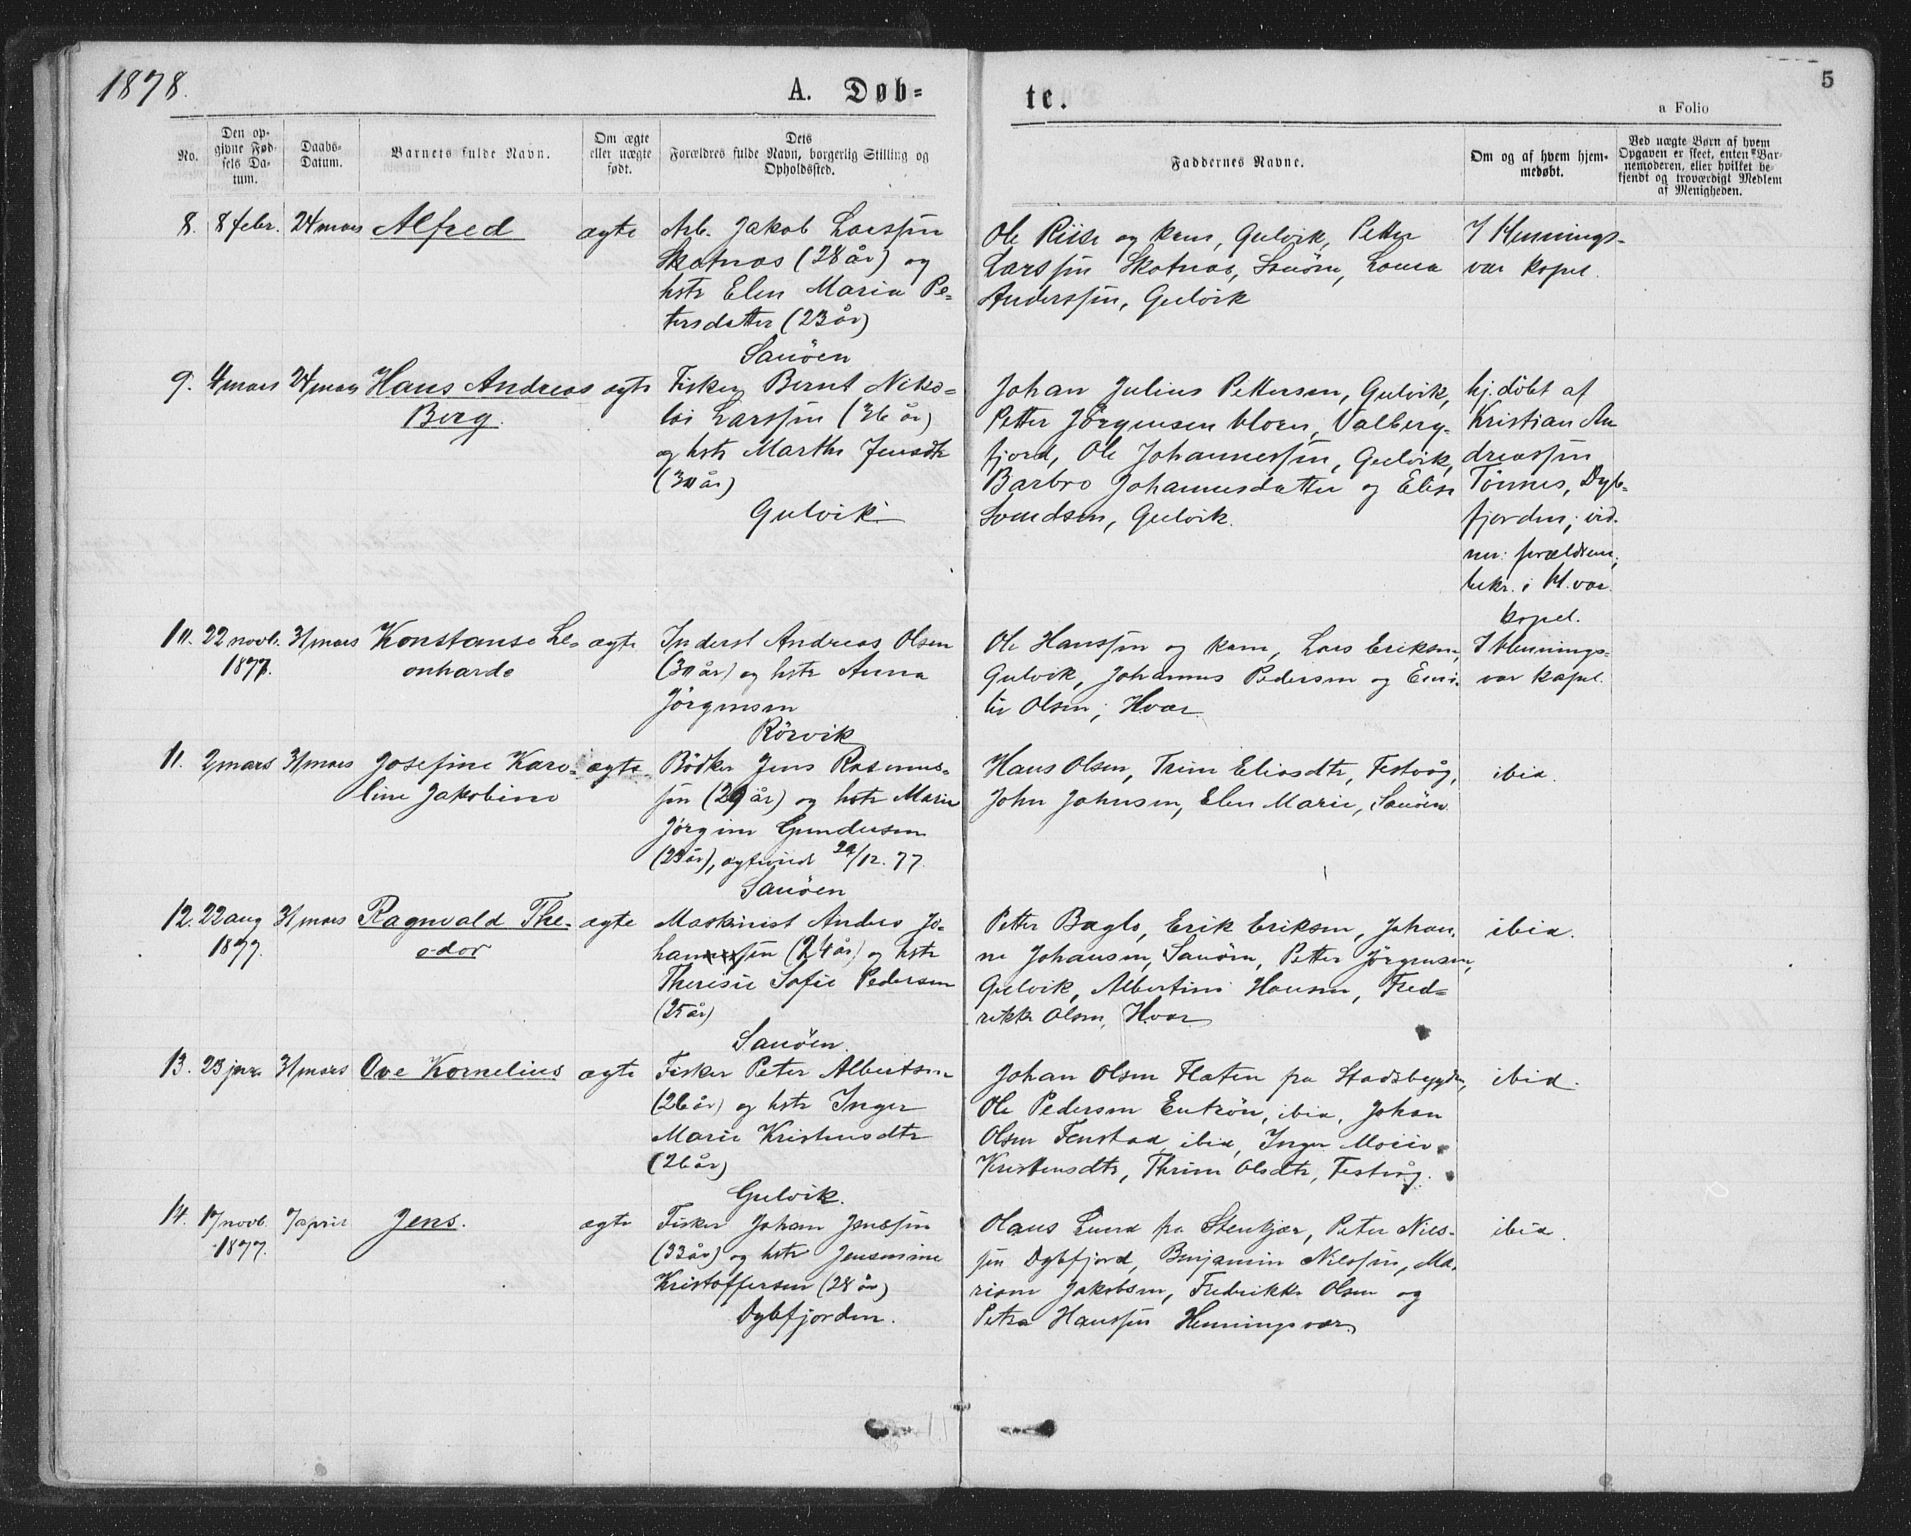 1878.
A. Døb=
te.
5
a Folio
No.
Den op-
givne Fød-
sels Da-
tum.
Daabs-
Datum.
Barnets fulde Navn.
Om ægte
eller uægte
født.
Dets
Forældres fulde Navn, borgerlig Stilling og
Opholdssted.
Faddernes Navne.
Om og af hvem hjem-
medøbt.
Ved uægte Børn af hvem
Opgaven er skeet, enten Bar-
nemoderen, eller hvilket be-
kjendt og troværdigt Medlem
af Menigheden.
8. 8 febr. 24 mars Alfred ægte
Arb. Jakob Larssøn
Skotnas (28 år) og
hstr Elen Maria Pe-
tersdatter (23 år)
Sauöen
Ole Riise og kone, Gulvik, Petter
Larssøn Skotnas, Sauöen, Lovisa
Anderssøn, Gulvik
I Hennings-
vær kapel.
9. 4 mars 24 mars Hans Andreas ægte
Berg.
Fisker Bernt Niko-
lai Larssøn (36 år)
og hstr Martha Jensdtr
(30 år)
Gulvik
Johan Julius Pettersen, Gulvik,
Petter Jörgensen Valberg-
fjord, Ole Johannessøn, Gulvik,
Barbro Johannesdatter og Elise
Svendsen, Gulvik.
hj. döbt af
Kristian An
dreassøn
Tönnes, Dyb-
fjorden; vid-
ner: forældrene;
bekr. i H.vær
kapel.
10. 22 novb. 31 mars Konstanse Le- ægte
1877. onharda
Inderst Andreas Olsen
(30 år) og hstr Anna
Jörgensen
Rörvik
Ole Hanssøn og kone, Lars Eriksen,
Gulvik, Johannes Pedersen og Emi-
lie Olsen, Hvær
I Hennings-
vær kapel.
11. 2 mars 31 mars Josefine Karo- ægte
line Jakobine
Bödker Jens Rasmus-
søn (29 år) og hstr Marie
Jörgine Gundersen
(23 år), ægteviet 29/12. 77.
Sauöen
Hans Olsen, Trine Eliasdtr, Festvåg,
John Johnsen, Elen Marie, Sauöen
ibid.
12. 22 aug 31 mars Ragnvald The- ægte
1877. odor
Maskinist Anders Jo-
hansen (24 år) og hstr
Theresie Sofie Pedersen
(25 år)
Sauöen.
Petter Baglo, Erik Eriksen, Johan-
ne Johansen, Sauöen, Petter Jörgensen,
Gulvik, Albertine Hansen, Fred-
rikke Olsen, Hvær
ibid.
13. 23 jan. 31 mars Ove Kornelius ægte
Fisker Peter Albertsen
(26 år) og hstr Inger
Marie Kristensdtr
(26 år)
Gulvik.
Johan Olsen Flaten fra Stadsbygden,
Ole Pedersen ibid, Johan
Olsen Fenstad ibid, Inger Marie
Kristensdtr, Thrine Olsdtr, Festvåg.
ibid.
14. 17 novb. 7 april Jens. ægte
1877.
Fisker Johan Jenssøn
(33 år) og hstr Jensmine
Kristoffersen (28 år)
Dybfjorden.
Olaus Lund fra Stenkjær, Peter Niels-
søn Dybfjord, Benjamin Nilssøn, Ma-
riane Jakobsen, Fredrikke Olsen og
Petra Hanssøn Henningsvær
ibid.